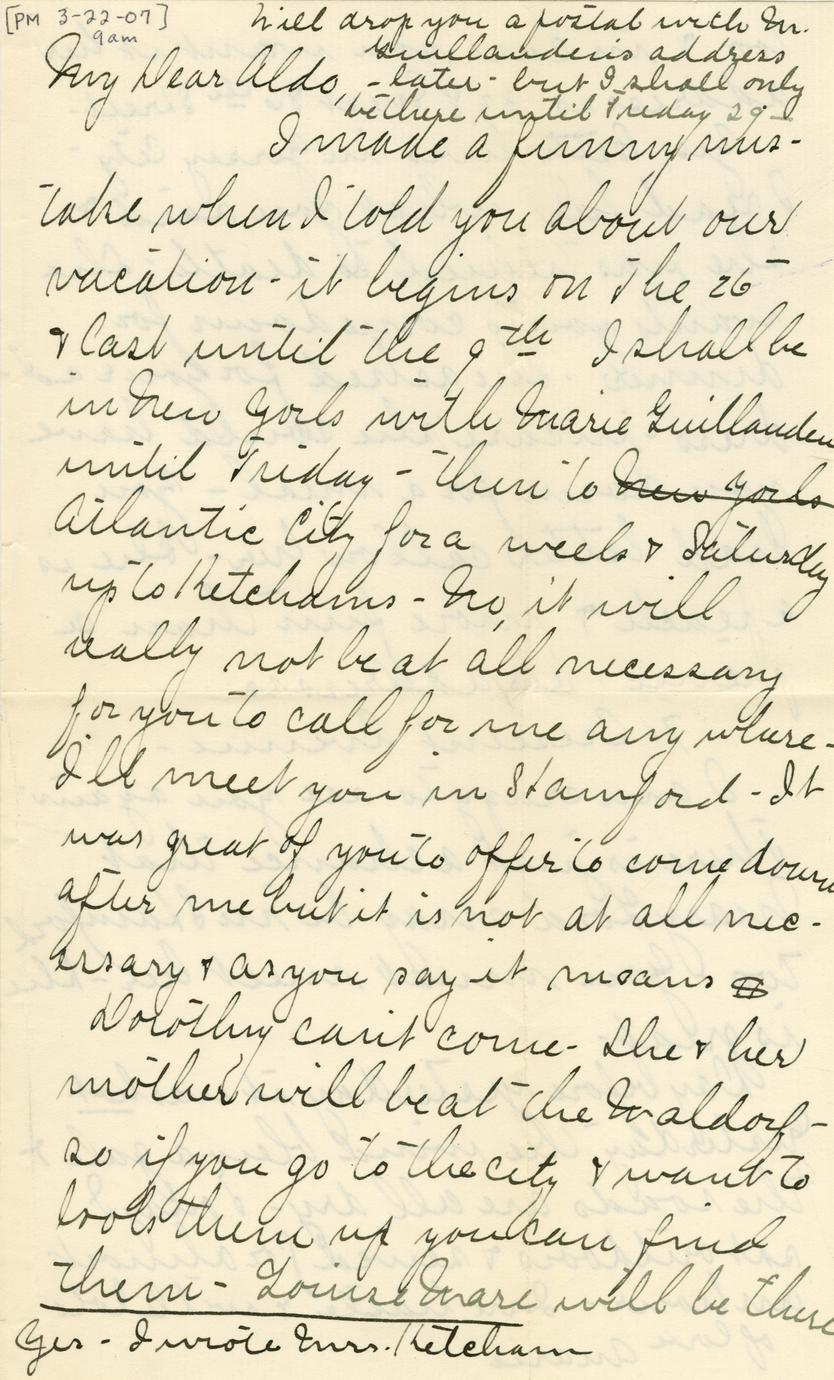 [PM 3-22-07]
9am
Will drop you a postal with M.
Guillauden's address
- later - but I shall only
be there until Friday 29-
My Dear Aldo,
I made a funny mis-
take when I told you about our
vacation - it begins on the 26
& last until the 9th I shall be
in New York with Marie Guillauden
until Friday - then to New York
Atlantic City for a week & Saturday
up to Ketchams - No, it will
really not be at all necessary
for you to call for me any where -
I'll meet you in Stamford - It
was great of you to offer to come down
after me but it is not at all nec-
essary & as you say it means $
Dorothy can't come - She & her
mother will be at the Waldorf -
so if you go to the city & want to
look them up you can find
them - Louise Mare will be there
Yes - I wrote Mrs. Ketcham